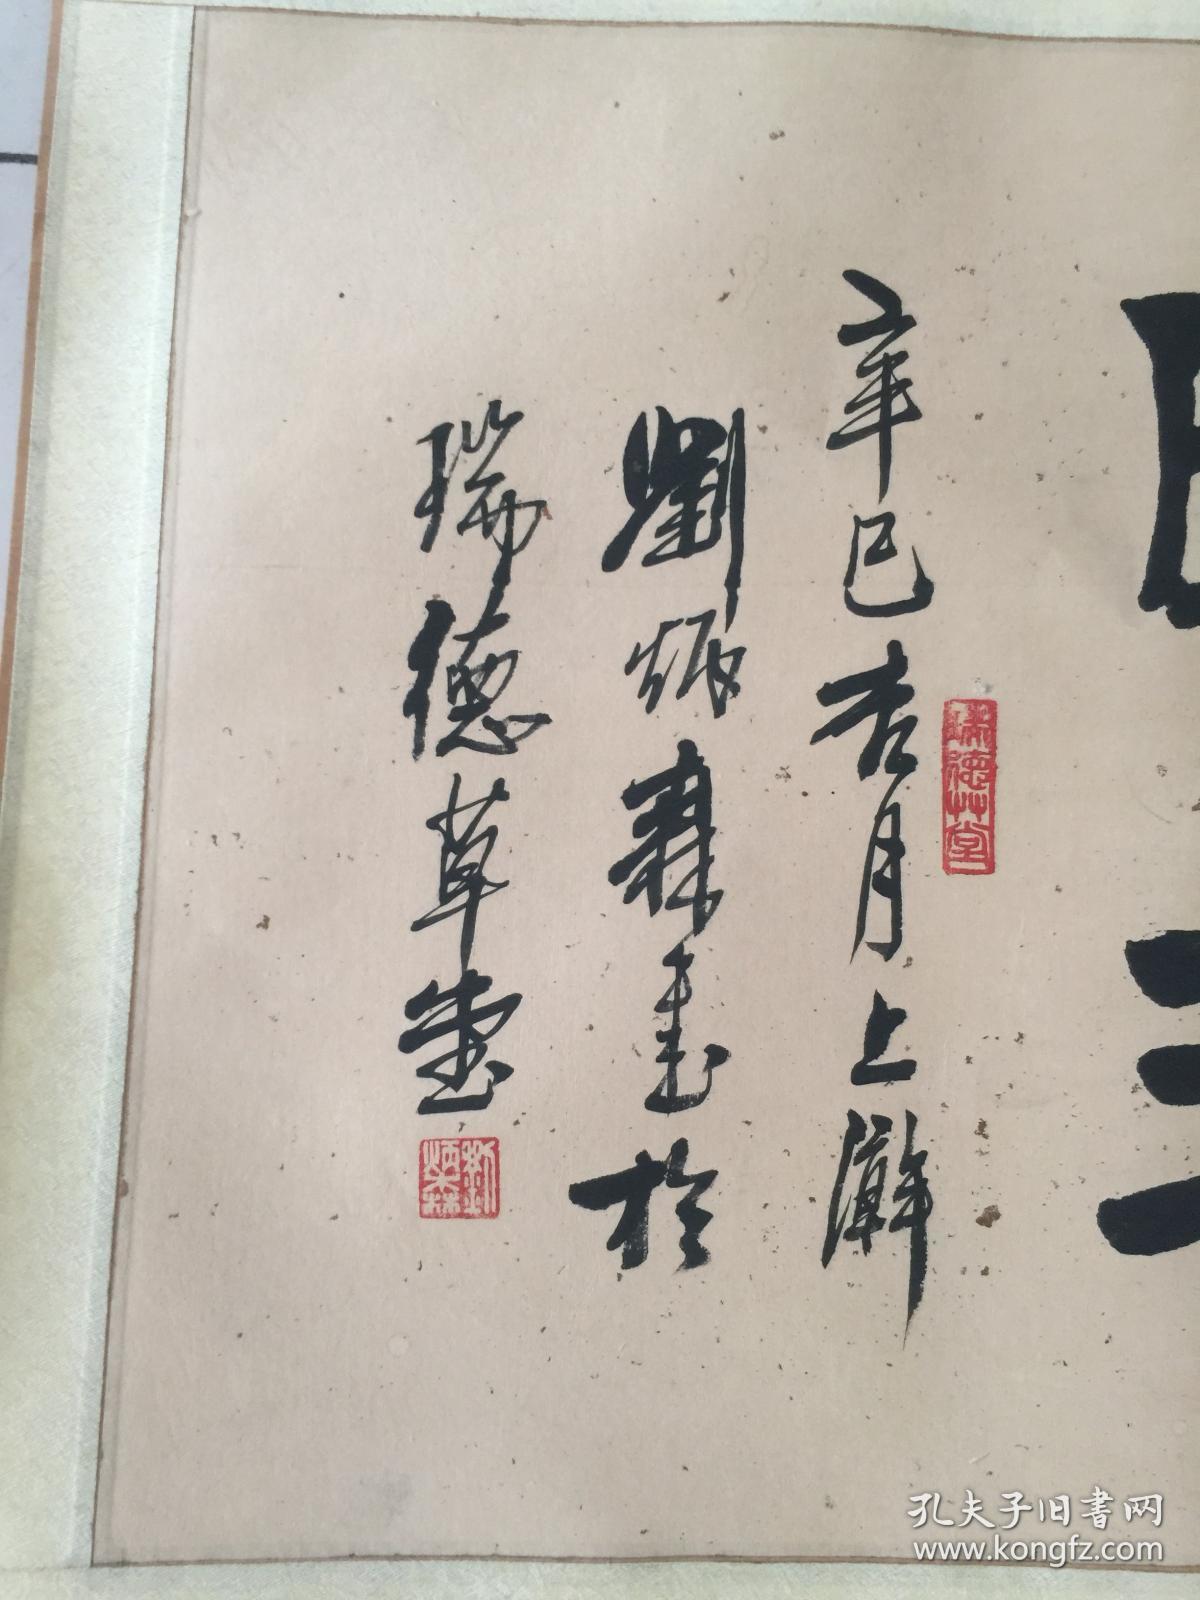 辛巳杏月上澣
劉炳森書於
瑞德草堂
瑞德艸堂
劉炳森
孔夫子旧书网
www.kongfz.com